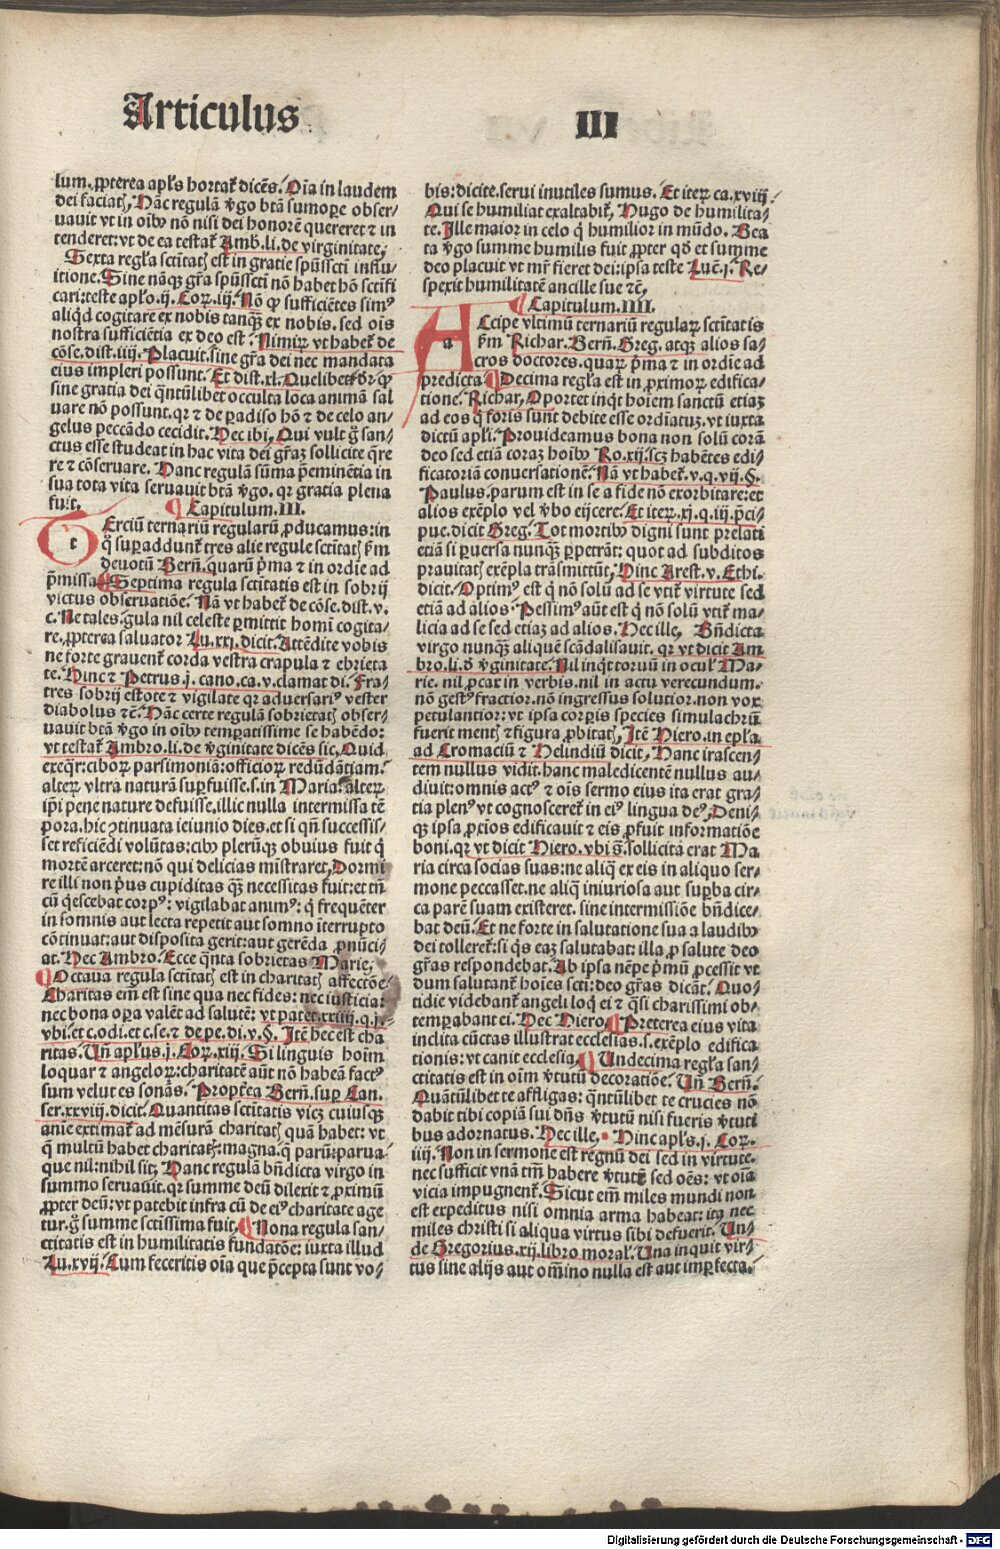 Articulus III
lum. ꝓpterea apl's hortat᷑ dicẽs. Oĩa in laudem
dei faciatꝭ. Hãc regulã ṽgo btã sumoꝑe obser⸗
uauit vt in oĩbꝰ nõ nisi dei honorẽ quereret ⁊ in
tenderet: vt de ea testat᷑ Amb̃. li. de virginitate.
Sexta regl'a sctĩtatꝭ est in gratie spũssctĩ influ⸗
itione. Sine nãqꝫ gr̃a spũssctĩ nõ habet᷑ hõ sctĩfi
cari: teste aplo. ij. Coꝝ. iij. Nõ ꝙ sufficiẽtes simꝰ
aliqd cogitare ex nobis tanqꝫ ex nobis. sed oĩs
nostra sufficiẽtia ex deo est. Nimiꝝ vt habet᷑ de
cõse. dist. iiij. Placuit. sine gr̃a dei nec mandata
eius impleri possunt. Et dist. xl. Quelibet. dr̃ ꝙ
sine gratia dei qñtũlibet occulta loca animã sal
uare nõ possunt. qꝛ ⁊ de padiso hõ ⁊ de celo an⸗
gelus peccãdo cecidit. Hec ibi. Qui vult g̃ san⸗
ctus esse studeat in hac vita dei gr̃aꝫ sollicite q̃re
re ⁊ cõseruare. Hanc regulã sũma p̃eminẽtia in
sua tota vita seruauit btã ṽgo. qꝛ gratia plena
fuit.
¶ Capitulum. III.
Terciũ ternariũ regularũ ꝓducamus: in
q̃ suꝑaddunt᷑ tres alie regule sctĩtatꝭ ẜm
deuotũ Berñ. quarũ p̃ma ⁊ in ordie ad
p̃missa ¶ Septima regula sctĩtatis est in sobrij
victus obseruatiõe. Nã vt habet᷑ de cõse. dist. v.
c. Ne tales. gula nil celeste ꝑmittit homĩ cogita⸗
re. ꝓpterea saluator Lu. xxi. dicit. Attẽdite vobis
ne forte grauent᷑ corda vestra crapula ⁊ ebrieta
te. Hinc ⁊ Petrus. j. cano. ca. v. clamat dĩ. Fra⸗
tres sobrij estote ⁊ vigilate qꝛ aduersariꝰ vester
diabolus ⁊c̃. Hãc certe regulã sobrietatꝭ obser⸗
uauit btã ṽgo in oĩbꝰ temꝑatissime se habẽdo:
vt testat᷑ Ambro. li. de ṽginitate dicẽs sic. Quid
exeqr̃: ciboꝝ parsimoniã: officioꝝ redũdãtiam.
alteꝝ vltra naturã suꝑfuisse. s. in Maria. alteꝝ
ip̃i pene nature defuisse. illic nulla intermissa tẽ
pora. hic ꝯtinuata ieiunio dies. et si qñ successis⸗
set reficiẽdi volũtas: cibꝰ plerũqꝫ obuius fuit q̃
mortẽ arceret: nõ qui delicias mĩstraret. Dormi
re illi non pꝰus cupiditas qꝫ necessitas fuit: et tñ
cũ q̃escebat corpꝰ: vigilabat animꝰ: q̃ frequẽter
in somnis aut lecta repetit aut somno ĩterrupto
cõtinuat: aut disposita gerit: aut gerẽda ꝓnũci⸗
at. Hec Ambro. Ecce q̃nta sobrietas Marie.
¶ Octaua regula sctĩtatꝭ est in charitatꝭ affectõe.
Charitas em̃ est sine qua nec fides: nec iusticia:
nec bona oꝑa valẽt ad salutẽ: vt patet. xxiiij. q. j.
vbi. et c. odi. et c. se. ⁊ de pe. di. v. §. Itẽ hec est cha
ritas. Vñ apl'us. j. Coꝝ. xiij. Si linguis hoĩm
loquar ⁊ angeloꝝ: charitatẽ aũt nõ habeã factꝰ
sum velut es sonãs. Propt̃ea Berñ. suꝑ Can.
ser. xxviij. dicit. Quantitas sctĩtatis vicꝫ cuiusqꝫ
anĩe extimat᷑ ad mẽsurã charitatꝭ quã habet: vt
q̃ multũ habet charitatꝭ: magna. q̃ parũ: parua
que nil: nihil sit. Hanc regulã bñdicta virgo in
summo seruauit. qꝛ summe deũ dilexit ⁊ ꝓximũ
ꝓpter deũ: vt patebit infra cũ de eiꝰ charitate age
tur. g̃ summe sctĩssima fuit. ¶ Nona regula san⸗
ctitatis est in humilitatis fundatõe: iuxta illud
Lu. xvij. Cum feceritis oĩa que p̃cepta sunt vo⸗
bis: dicite. serui inutiles sumus. Et iteꝝ ca. xviij.
Qui se humiliat exaltabit᷑. Hugo de humilita⸗
te. Ille maior in celo q̃ humilior in mũdo. Bea
ta ṽgo summe humilis fuit ꝓpter qd̃ et summe
deo placuit vt mr̃ fieret dei: ipsa teste Luc̃. j. Re⸗
spexit humilitatẽ ancille sue ⁊c̃.
¶ Capitulum. IIII.
Accipe vltimũ ternariũ regulaꝝ sctĩtatis
ẜm Richar. Berñ. Greg. atqꝫ alios sa⸗
cros doctores. quaꝝ p̃ma ⁊ in ordĩe ad
predicta ¶ Decima regl'a est in ꝓximoꝝ edifica⸗
tione. Richar. Oportet inq̃t hoĩem sanctũ etiaꝫ
ad eos q̃ foris sunt debite esse ordĩatuꝫ. vt iuxta
dictũ apl'i. Prouideamus bona non solũ corã
deo sed etiã coraꝫ hoĩbꝰ Ro. xij. scꝫ habẽtes edi⸗
ficatoriã conuersationẽ. Nã vt habet᷑. v. q. vij. §.
Paulus. parum est in se a fide nõ exorbitare: et
alios exẽplo vel ṽbo eijcere. Et iteꝝ. xj. q. iij. p̃ci⸗
pue. dicit Greg. Tot mortibꝰ digni sunt prelati
etiã si ꝑuersa nunqꝫ ꝑpetrãt: quot ad subditos
prauitatꝭ exẽpla trãsmittũt. Hinc Arest. v. Ethi.
dicit. Optimꝰ est q̃ nõ solũ ad se vtit᷑ virtute sed
etiã ad alios. Pessimꝰ aũt est q̃ nõ solũ vtit᷑ ma⸗
licia ad se sed etiaꝫ ad alios. Hec ille. Bñdicta
virgo nunqꝫ aliquẽ scãdalisauit. qꝛ vt dicit Am
bro. li. d̃ ṽginitate. Nil inq̃t toruũ in ocul' Ma⸗
rie. nil ꝓcax in verbis. nil in actu verecundum.
nõ gestꝰ fractior. nõ ingressus solutior. non vox
petulantior: vt ipsa corꝑis species simulachrũ
fuerit mentꝭ ⁊ figura ꝓbitatꝭ. Itẽ Hiero. in epl'a
ad Cromaciũ ⁊ Helindiũ dicit. Hanc irascen⸗
tem nullus vidit. hanc maledicentẽ nullus au⸗
diuit: omnis actꝰ ⁊ oĩs sermo eius ita erat gra⸗
tia plenꝰ vt cognosceret᷑ in eiꝰ lingua deꝰ. Deni⸗
qꝫ ipsa ꝓxĩos edificauit ⁊ eis ꝓfuit informatiõe
boni. qꝛ vt dicit Hiero. vbi s̃. sollicita erat Ma
ria circa socias suas: ne aliq̃ ex eis in aliquo ser⸗
mone peccasset. ne aliq̃ iniuriosa aut suꝑba cir⸗
ca parẽ suam existeret. sine intermissiõe bñdice⸗
bat deũ. Et ne forte in salutatione sua a laudibꝰ
dei tolleret᷑: si q̃s eaꝫ salutabat: illa ꝓ salute deo
gr̃as respondebat. Ab ipsa nẽpe p̃mũ ꝓcessit vt
dum salutant᷑ hoĩes sctĩ: deo gr̃as dicãt. Quo⸗
tidie videbant᷑ angeli loq̃ ei ⁊ q̃si charissimi ob⸗
temꝑabant ei. Hec Hiero. ¶ Preterea eius vita
inclita cũctas illustrat ecclesias. s. exẽplo edifica
tionis: vt canit ecclesia. ¶ Undecima regl'a san⸗
ctitatis est in oĩm ṽtutũ decoratiõe. Uñ Berñ.
Quãtũlibet te affligas: qñtũlibet te crucies nõ
dabit tibi copiã sui dñs ṽtutũ nisi fueris ṽtuti
bus adornatus. Hec ille. Hinc apl's. j. Coꝝ.
iiij. Non in sermone est regnũ dei sed in virtute.
nec sufficit vnã tm̃ habere ṽtutẽ sed oẽs: vt oĩa
vicia impugnent᷑. Sicut em̃ miles mundi non
est expeditus nisi omnia arma habeat: ita nec
miles christi si aliqua virtus sibi defuerit. Un⸗
de Gregorius. xij. libro moral'. Una inquit vir⸗
tus sine alijs aut om̃ino nulla est aut imꝑfecta.
Digitalisierung gefördert durch die Deutsche Forschungsgemeinschaft - DFG